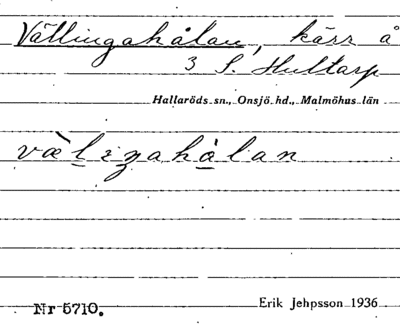 Vällingahålan, kärr å
3 S. Hultarp
Hallaröds sn., Onsjö hd., Malmöhus län
Nr 5710.
Erik Jehpsson 1936